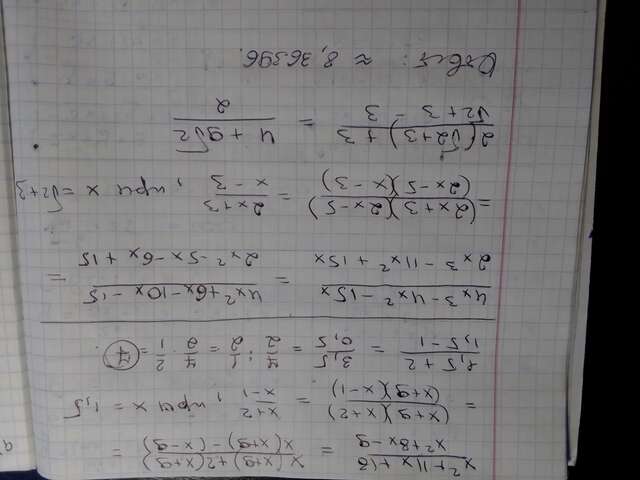 x²+11x+18 / x²+8x-9 = x(x+9)+2(x+9) / x(x+9)-(x-9) =
= (x+9)(x+2) / (x+9)(x-1) = x+2 / x-1, при x = 1,5
1,5+2 / 1,5-1 = 3,5 / 0,5 = 7/2 : 1/2 = 7/2 · 2/1 = 7
4x³-4x²-15x / 2x³-11x²+15x = 4x²+6x-10x-15 / 2x²-5x-6x+15 =
= (2x+3)(2x-5) / (2x-5)(x-3) = 2x+3 / x-3, при x = √2+3
2(√2+3)+3 / √2+3-3 = 4+9√2 / 2
Ответ: ≈ 8,36396.